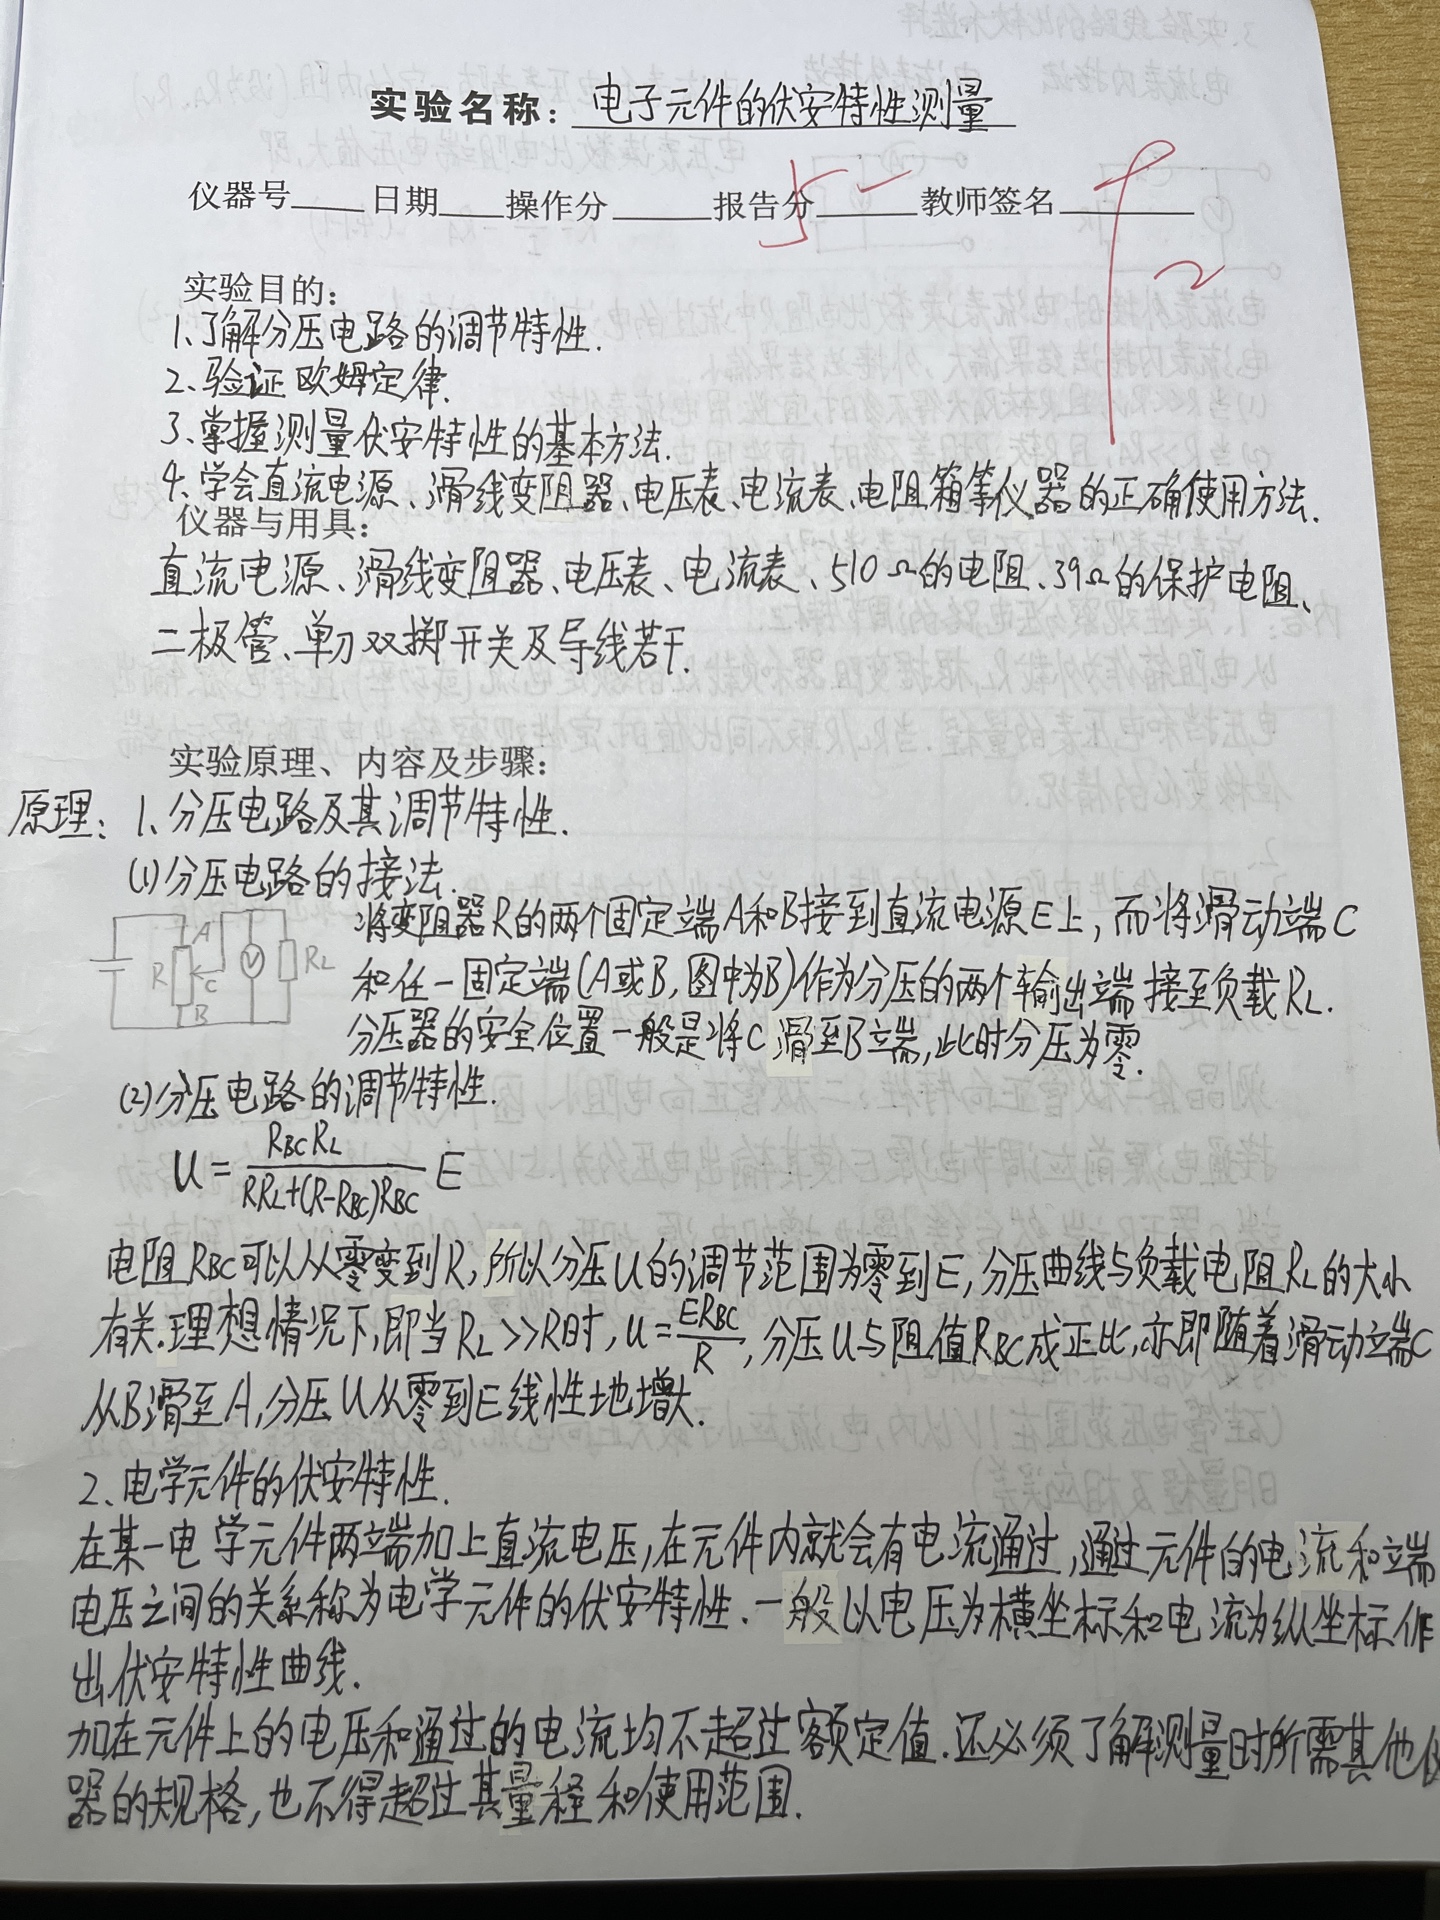 实验名称：电子元件的伏安特性测量
仪器号____日期____操作分____报告分____教师签名____
实验目的：
1.了解分压电路的调节特性.
2、验证欧姆定律.
3、掌握测量伏安特性的基本方法.
4、学会直流电源、滑线变阻器、电压表、电流表、电阻箱等仪器的正确使用方法.
仪器与用具：
直流电源、滑线变阻器、电压表、电流表、510Ω的电阻、39Ω的保护电阻、
二极管、单刀双掷开关及导线若干.
实验原理、内容及步骤：
原理：1、分压电路及其调节特性.
(1)分压电路的接法.
将变阻器R的两个固定端A和B接到直流电源E上，而将滑动端C
和任一固定端(A或B,图中为B)作为分压的两个输出端接至负载RL.
分压器的安全位置一般是将C滑至B端,此时分压为零.
A R C B V RL
(2)分压电路的调节特性.
U = RBC RL / RRL+(R-RBC)RBC E
电阻RBC可以从零变到R,所以分压U的调节范围为零到E,分压曲线与负载电阻RL的大小
有关.理想情况下,即当RL>>R时,U=ERBC/R,分压U与阻值RBC成正比,亦即随着滑动端C
从B滑至A,分压U从零到E线性地增大.
2、电学元件的伏安特性.
在某一电学元件两端加上直流电压,在元件内就会有电流通过,通过元件的电流和端
电压之间的关系称为电学元件的伏安特性.一般以电压为横坐标和电流为纵坐标作
出伏安特性曲线.
加在元件上的电压和通过的电流均不超过额定值.还必须了解测量时所需其他仪
器的规格,也不得超过其量程和使用范围.